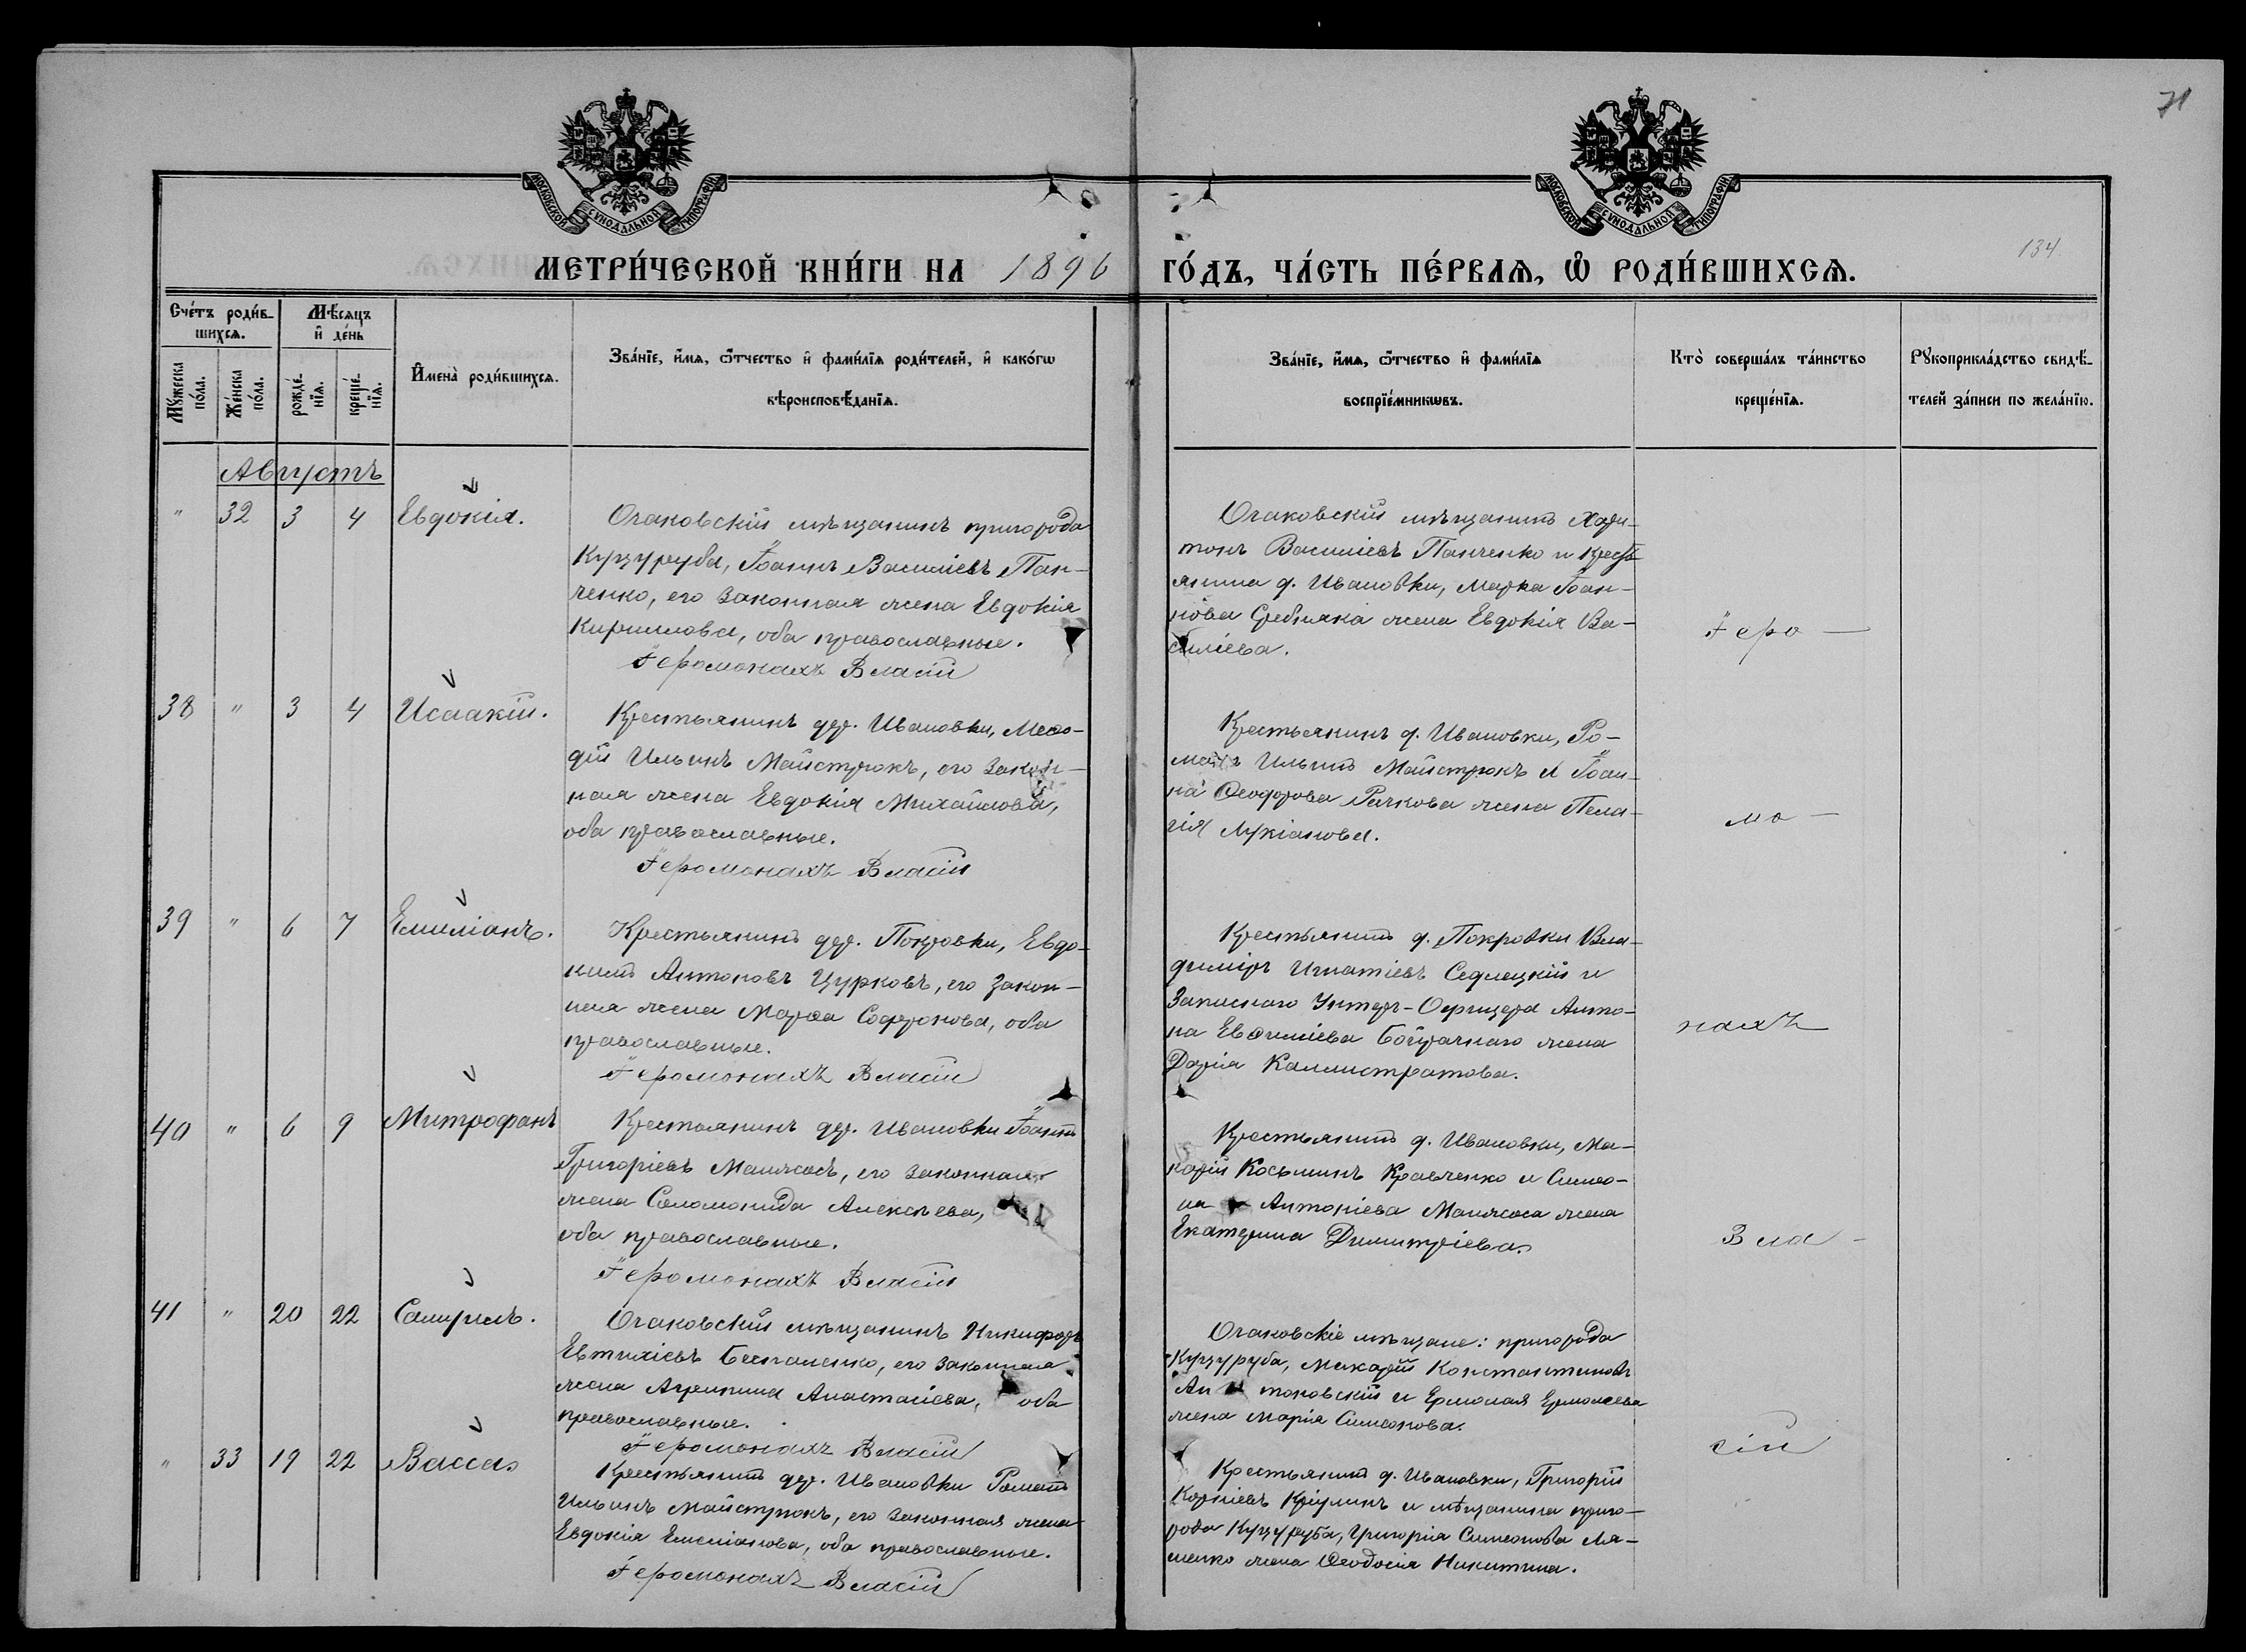 71
134
МОСКОВСКОЙ СѴНОДАЛЬНОЙ ТИПОГРАФІИ
МОСКОВСКОЙ СѴНОДАЛЬНОЙ ТИПОГРАФІИ
МЕТРИ́ЧЕСКОЙ КНИ́ГИ НА 1896 ГО́ДЪ, ЧА́СТЬ ПЕ́РВАѦ, Ѽ РОДИ́ВШИХСѦ.
Сче́тъ роди́в-
шихсѧ.
Мѣ́сѧцъ
и҆ де́нь
Мꙋ́жеска
по́ла.
Же́нска
по́ла.
рожде́-
нїѧ.
креще́-
нїѧ.
И҆мена̀ роди́вшихсѧ.
Зва́нїе, и҆́мѧ, ѻ҆́тчество и҆ фами́лїѧ роди́телей, и҆ како́гѡ
вѣроисповѣ́данїѧ.
Зва́нїе, и҆́мѧ, ѻ҆́тчество и҆ фами́лїѧ
воспрїе́мникѡвъ.
Кто̀ соверша́лъ та́инство
креще́нїѧ.
Рꙋкоприкла́дство свидѣ́-
телей за́писи по жела́нїю.
Августъ
" 32 3 4 Евдокія.
Очаковскій мѣщанинъ пригорода
Куцуруба, Іоаннъ Василіевъ Пан-
ченко, его законная жена Евдокія
Кириллова, оба православные.
Іеромонахъ Власій
Очаковскій мѣщанинъ Хари-
тонъ Василіевъ Панченко и крестъ-
янина д. Ивановки, Марка Іоан-
нова Гребляка жена Евдокія Ва-
силіева.
Іеро-
38 " 3 4 Исаакій.
Крестьянинъ дер. Ивановки, Меѳо-
дій Ильинъ Майстрюкъ, его закон-
ная жена Евдокія Михайлова,
оба православные.
Іеромонахъ Власій
Крестьянинъ д. Ивановки, Ро-
манъ Ильинъ Майстрюкъ и Іоан-
на Ѳеодорова Рачкова жена Пела-
гія Лукіанова.
мо-
39 " 6 7 Емиліанъ.
Крестьянинъ дер. Покровки, Евдо-
кимъ Антоновъ Цурковъ, его закон-
ная жена Марѳа Софронова, оба
православные.
Іеромонахъ Власій
Крестьянинъ д. Покровки Вла-
диміръ Игнатіевъ Седлецкій и
Запаснаго Унтеръ-Офицера Анто-
на Евѳиміева жена
Дарія Каллистратова.
нахъ
40 " 6 9 Митрофанъ
Крестьянинъ дер. Ивановки Іоаннъ
Григоріевъ Манжосъ, его законная
жена Соломонида Алексѣева,
оба православные.
Іеромонахъ Власій
Крестьянинъ д. Ивановки, Ма-
карій Косьминъ Кравченко и Симео-
на Антоніева Манжоса жена
Екатерина Димитріева.
Вла-
41 " 20 22 Самуилъ.
Очаковскій мѣщанинъ Никифоръ
Евтихіевъ Беспаленко, его законная
жена Агрипина Анастасіева, оба
православные.
Іеромонахъ Власій
Очаковскіе мѣщане: пригорода
Куцуруба, Макарій Константиновъ
Антоновскій и Ермолая Ермолаева
жена Марія Симеонова.
сій
" 33 19 22 Васса
Крестьянинъ дер. Ивановки Романъ
Ильинъ Майструкъ, его законная жена
Евдокія Емеліанова, оба православные.
Іеромонахъ Власій
Крестьянинъ д. Ивановки, Григорій
Корніевъ и мѣщанина приго-
рода Куцуруба, Григорія Симеонова Ля-
шенко жена Ѳеодосія Никитина.